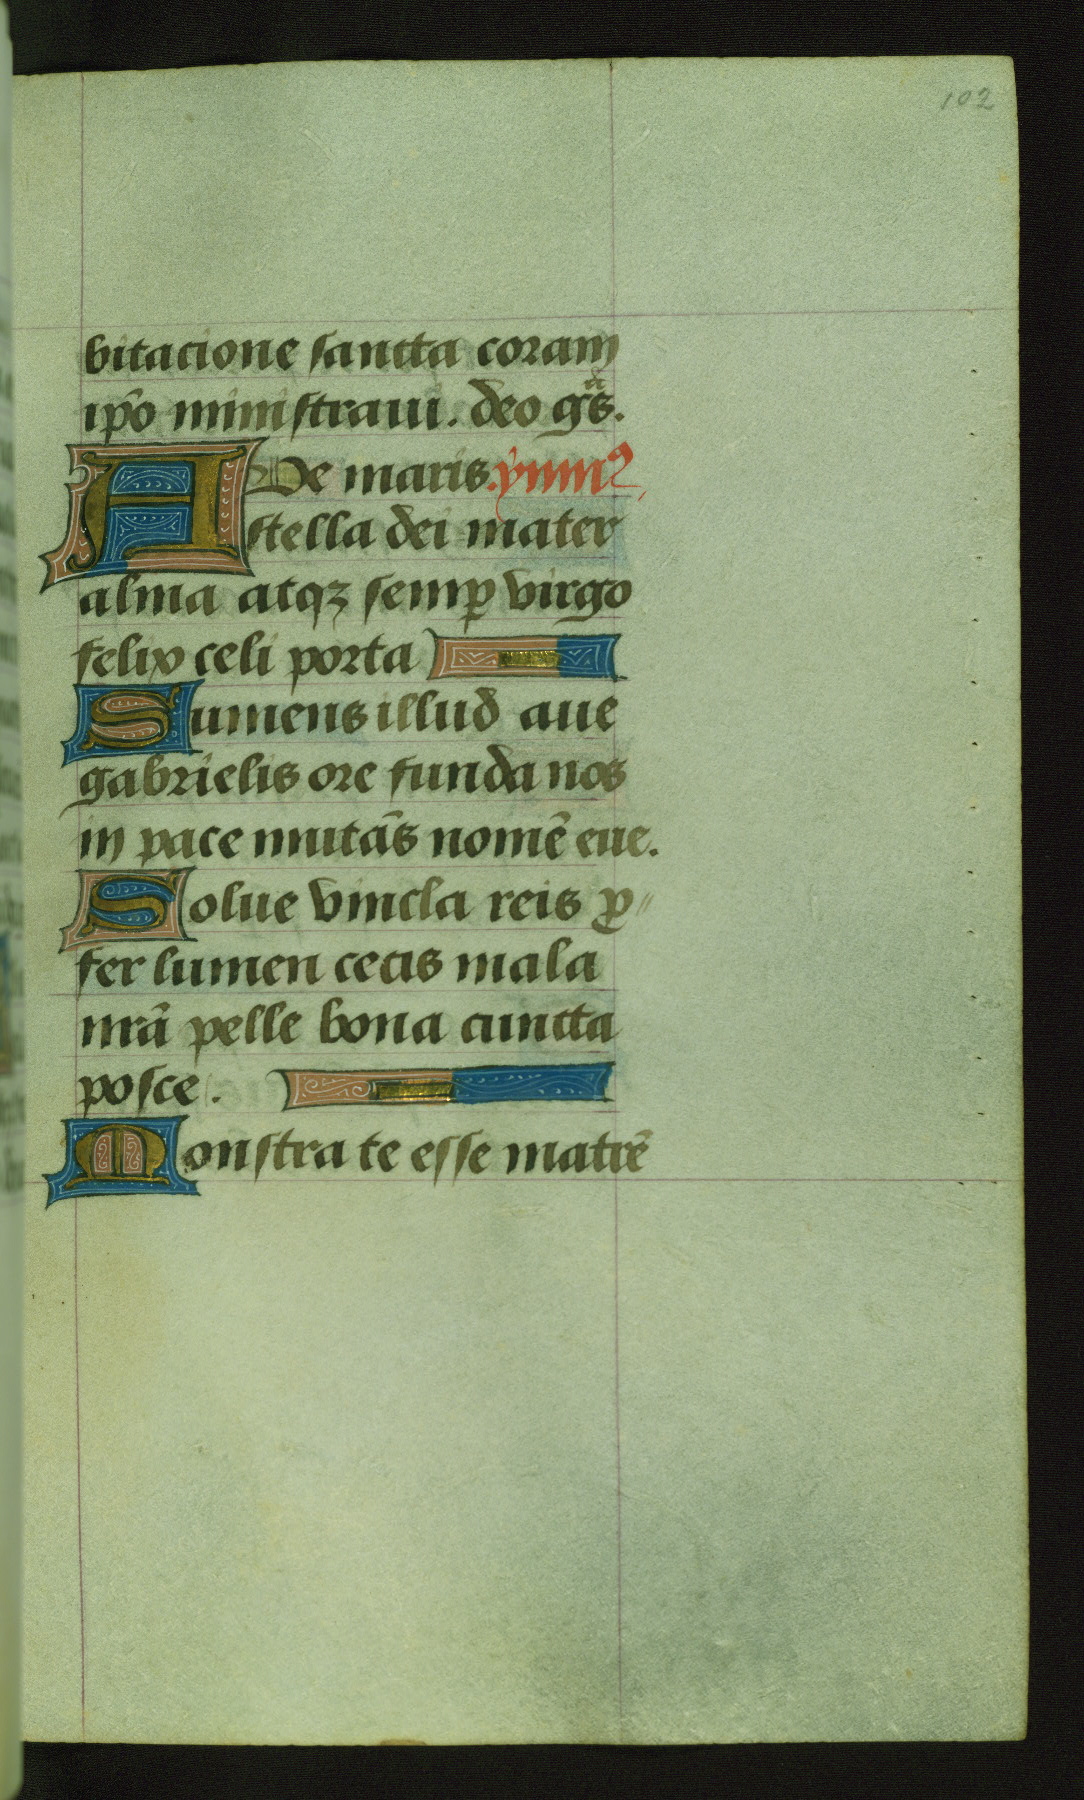 102
bitacione sancta coram
ip̃o ministraui. deo gr̃as.
ADe maris. ymnꝰ
stella dei mater
alma atqꝫ semꝑ virgo
felix celi porta
Sumens illud aue
gabrielis ore funda nos
in pace mutãs nomẽ eue.
Solue vincla reis ꝓ〃
fer lumen cecis mala
nrã pelle bona cuncta
posce.
Monstra te esse matrẽ